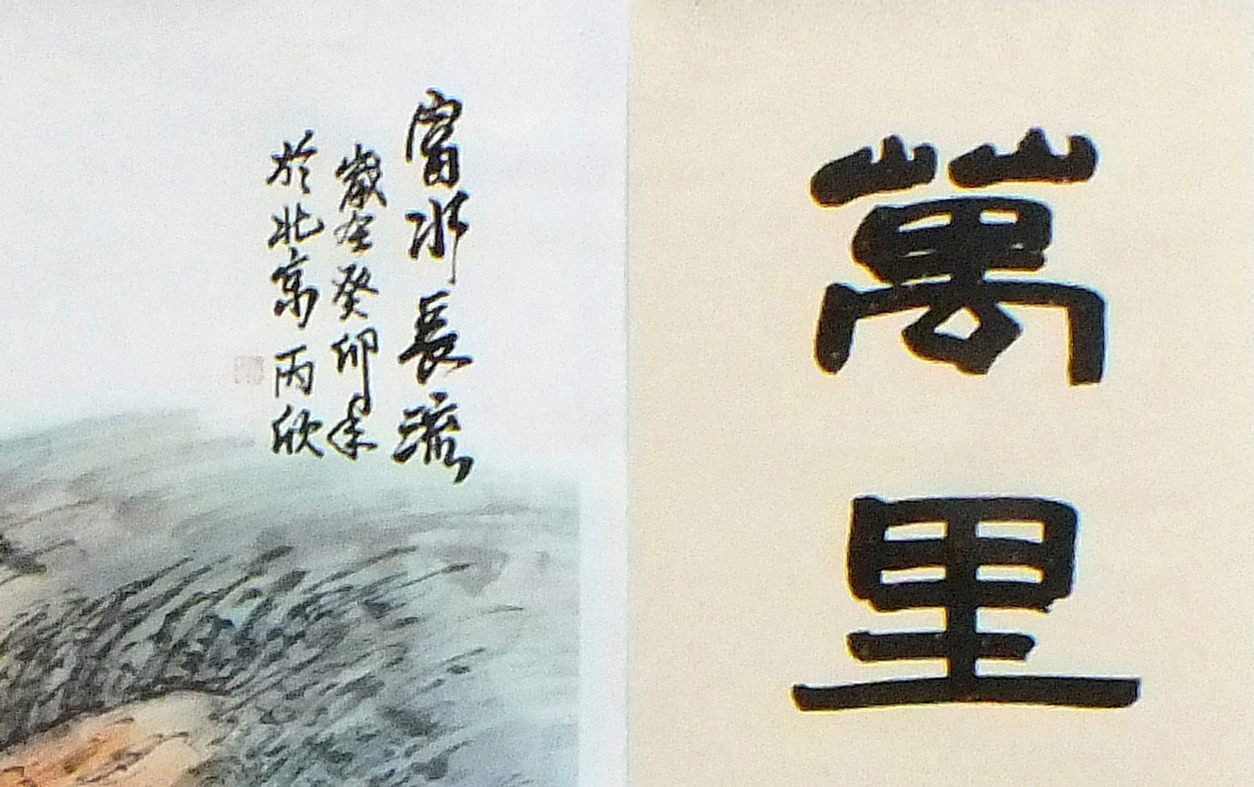 萬里
富水長流
歲在癸卯年
於北京丙欣